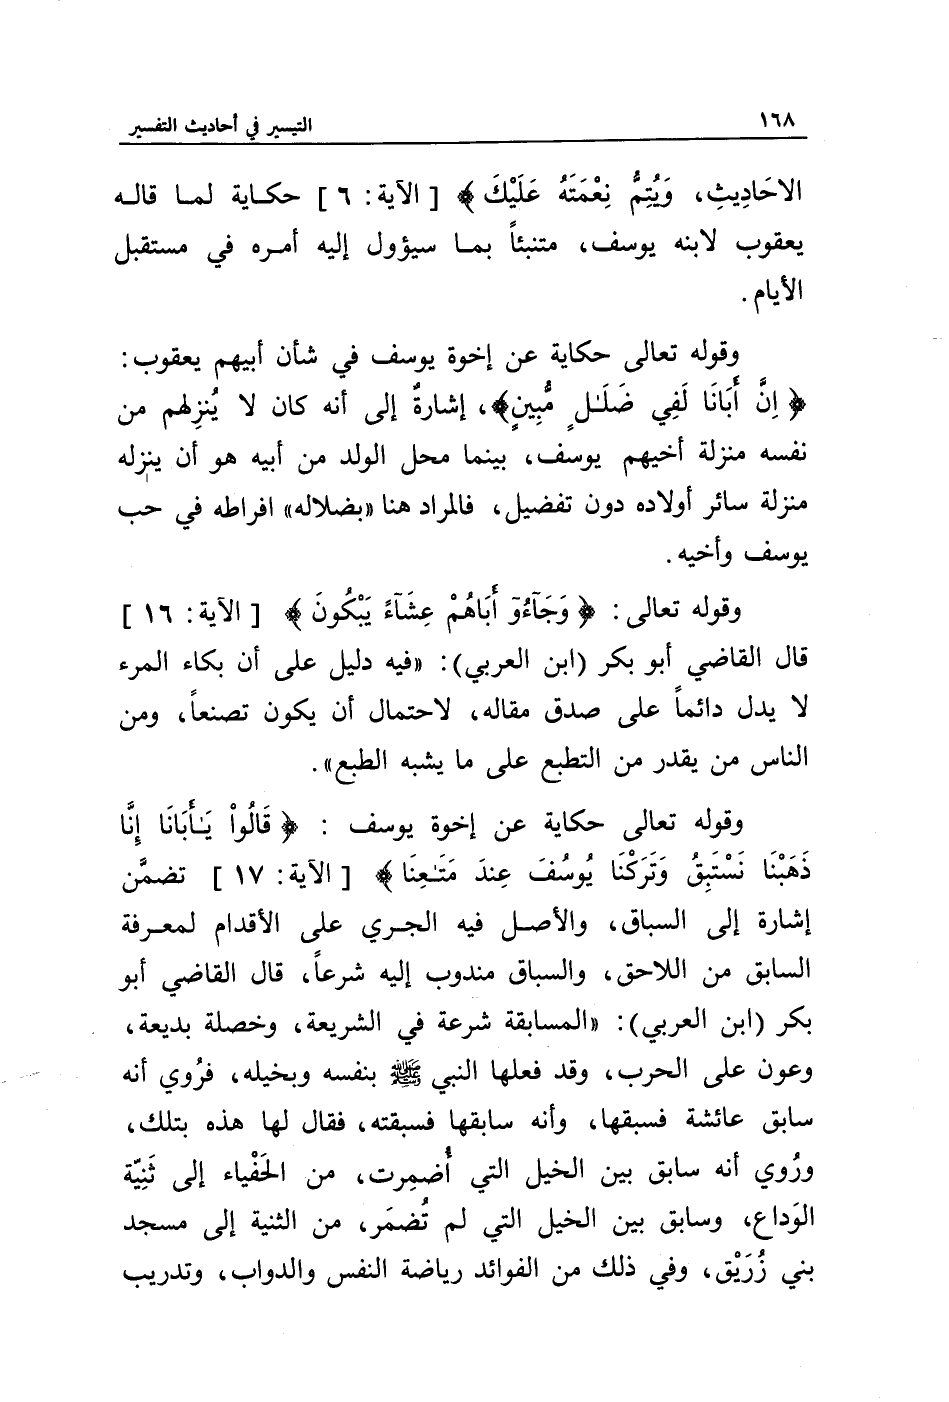 ١٦٨ التيسير في أحاديث التفسير
الاحَادِيثِ، وَيُتِمُّ نِعْمَتَهُ عَلَيْكَ ﴾ [ الآية: ٦ ] حكاية لما قاله
يعقوب لابنه يوسف، متنبئاً بما سيؤول إليه أمره في مستقبل
الأيام.
وقوله تعالى حكاية عن إخوة يوسف في شأن أبيهم يعقوب:
﴿ اِنَّ أَبَانَا لَفِي ضَلَـٰلٍ مُّبِينٍ﴾، إشارةٌ إلى أنه كان لا يُنزِلهم من
نفسه منزلة أخيهم يوسف، بينما محل الولد من أبيه هو أن ينزله
منزلة سائر أولاده دون تفضيل، فالمراد هنا «بضلاله» افراطه في حب
يوسف وأخيه.
وقوله تعالى: ﴿ وَجَآءُوٓ أَبَاهُمْ عِشَآءً يَبْكُونَ ﴾ [ الآية: ١٦ ]
قال القاضي أبو بكر (ابن العربي): «فيه دليل على أن بكاء المرء
لا يدل دائماً على صدق مقاله، لاحتمال أن يكون تصنعاً، ومن
الناس من يقدر من التطبع على ما يشبه الطبع».
وقوله تعالى حكاية عن إخوة يوسف : ﴿ قَالُواْ يَـٰأَبَانَا إِنَّا
ذَهَبْنَا نَسْتَبِقُ وَتَرَكْنَا يُوسُفَ عِندَ مَتَـٰعِنَا ﴾ [ الآية: ١٧ ] تضمَّن
إشارة إلى السباق، والأصل فيه الجري على الأقدام لمعرفة
السابق من اللاحق، والسباق مندوب إليه شرعاً، قال القاضي أبو
بكر (ابن العربي): «المسابقة شرعة في الشريعة، وخصلة بديعة،
وعون على الحرب، وقد فعلها النبي ﷺ بنفسه وبخيله، فرُوي أنه
سابق عائشة فسبقها، وأنه سابقها فسبقته، فقال لها هذه بتلك،
ورُوي أنه سابق بين الخيل التي أُضمِرت، من الحَفْياء إلى ثَنِيّة
الوَداع، وسابق بين الخيل التي لم تُضمَر، من الثنية إلى مسجد
بني زُرَيْق، وفي ذلك من الفوائد رياضة النفس والدواب، وتدريب